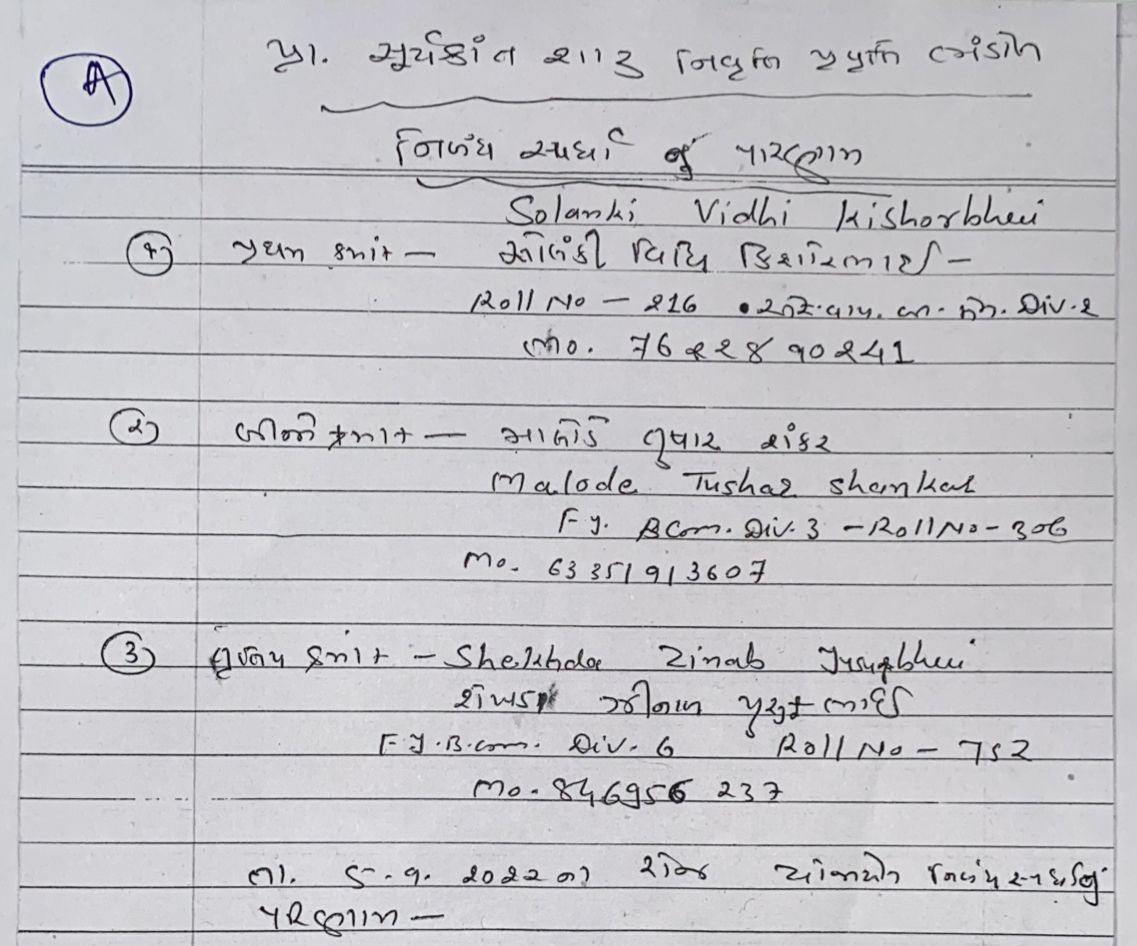 A
પ્રા. સૂર્યકાંત શાહ નિવૃત્તિ પ્રવૃત્તિ ભંડોળ
નિબંધ સ્પર્ધા નું પરિણામ
Solanki Vidhi Kishorbhai
૧ પ્રથમ ક્રમાંક — સોલંકી વિધિ કિશોરભાઈ —
Roll No — 216 Div. 2
Mo.
૨ બીજો ક્રમાંક — માળોદે તુષાર શંકર
Malode Tushar Shankar
F.y. B Com. Div. 3 — Roll No - 306
Mo. 63351913607
3 તૃતીય ક્રમાંક — Shekhda Zinab
શેખડા ઝીનાબ યુસુફભાઈ
F.Y.B.com. Div. 6 Roll No — 752
Mo. 846956 237
તા. ૫.૧. ૨૦૨૨ના રોજ યોજાયેલ નિબંધ સ્પર્ધાનું
પરિણામ —